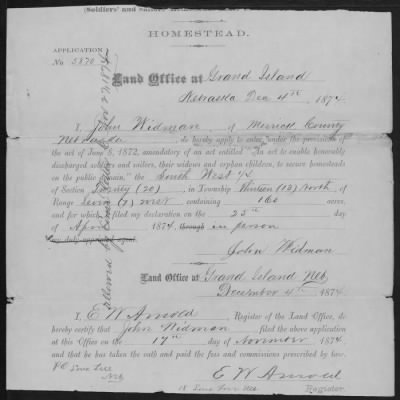 (Soldiers' and
HOMESTEAD.
APPLICATION
No. 5870
Land Office at Grand Island
Nebraska Dec 4th, 1874
I, John Widman, of Merrick County
Nebraska do hereby apply to enter, under the provisions of
the act of June 8, 1872, amendatory of an act entitled "An act to enable honorably
discharged soldiers and sailors, their widows and orphan children, to secure homesteads
on the public domain," the South West 1/4
of Section Twenty (20), in Township Thirteen (13) North, of
Range Seven (7) West, containing 160 acres,
and for which I filed my declaration on the 25th day
of April 1874, through in person
my duly appointed agent.
John Widman
Land Office at Grand Island Neb,
December 4th, 1874
I, E W Arnold, Register of the Land Office, do
hereby certify that John Widman filed the above application
at this Office on the 17th day of November 1874,
and that he has taken the oath and paid the fees and commissions prescribed by law.
PO Lone Tree
Neb
E W Arnold
Register.
Lone Tree Neb